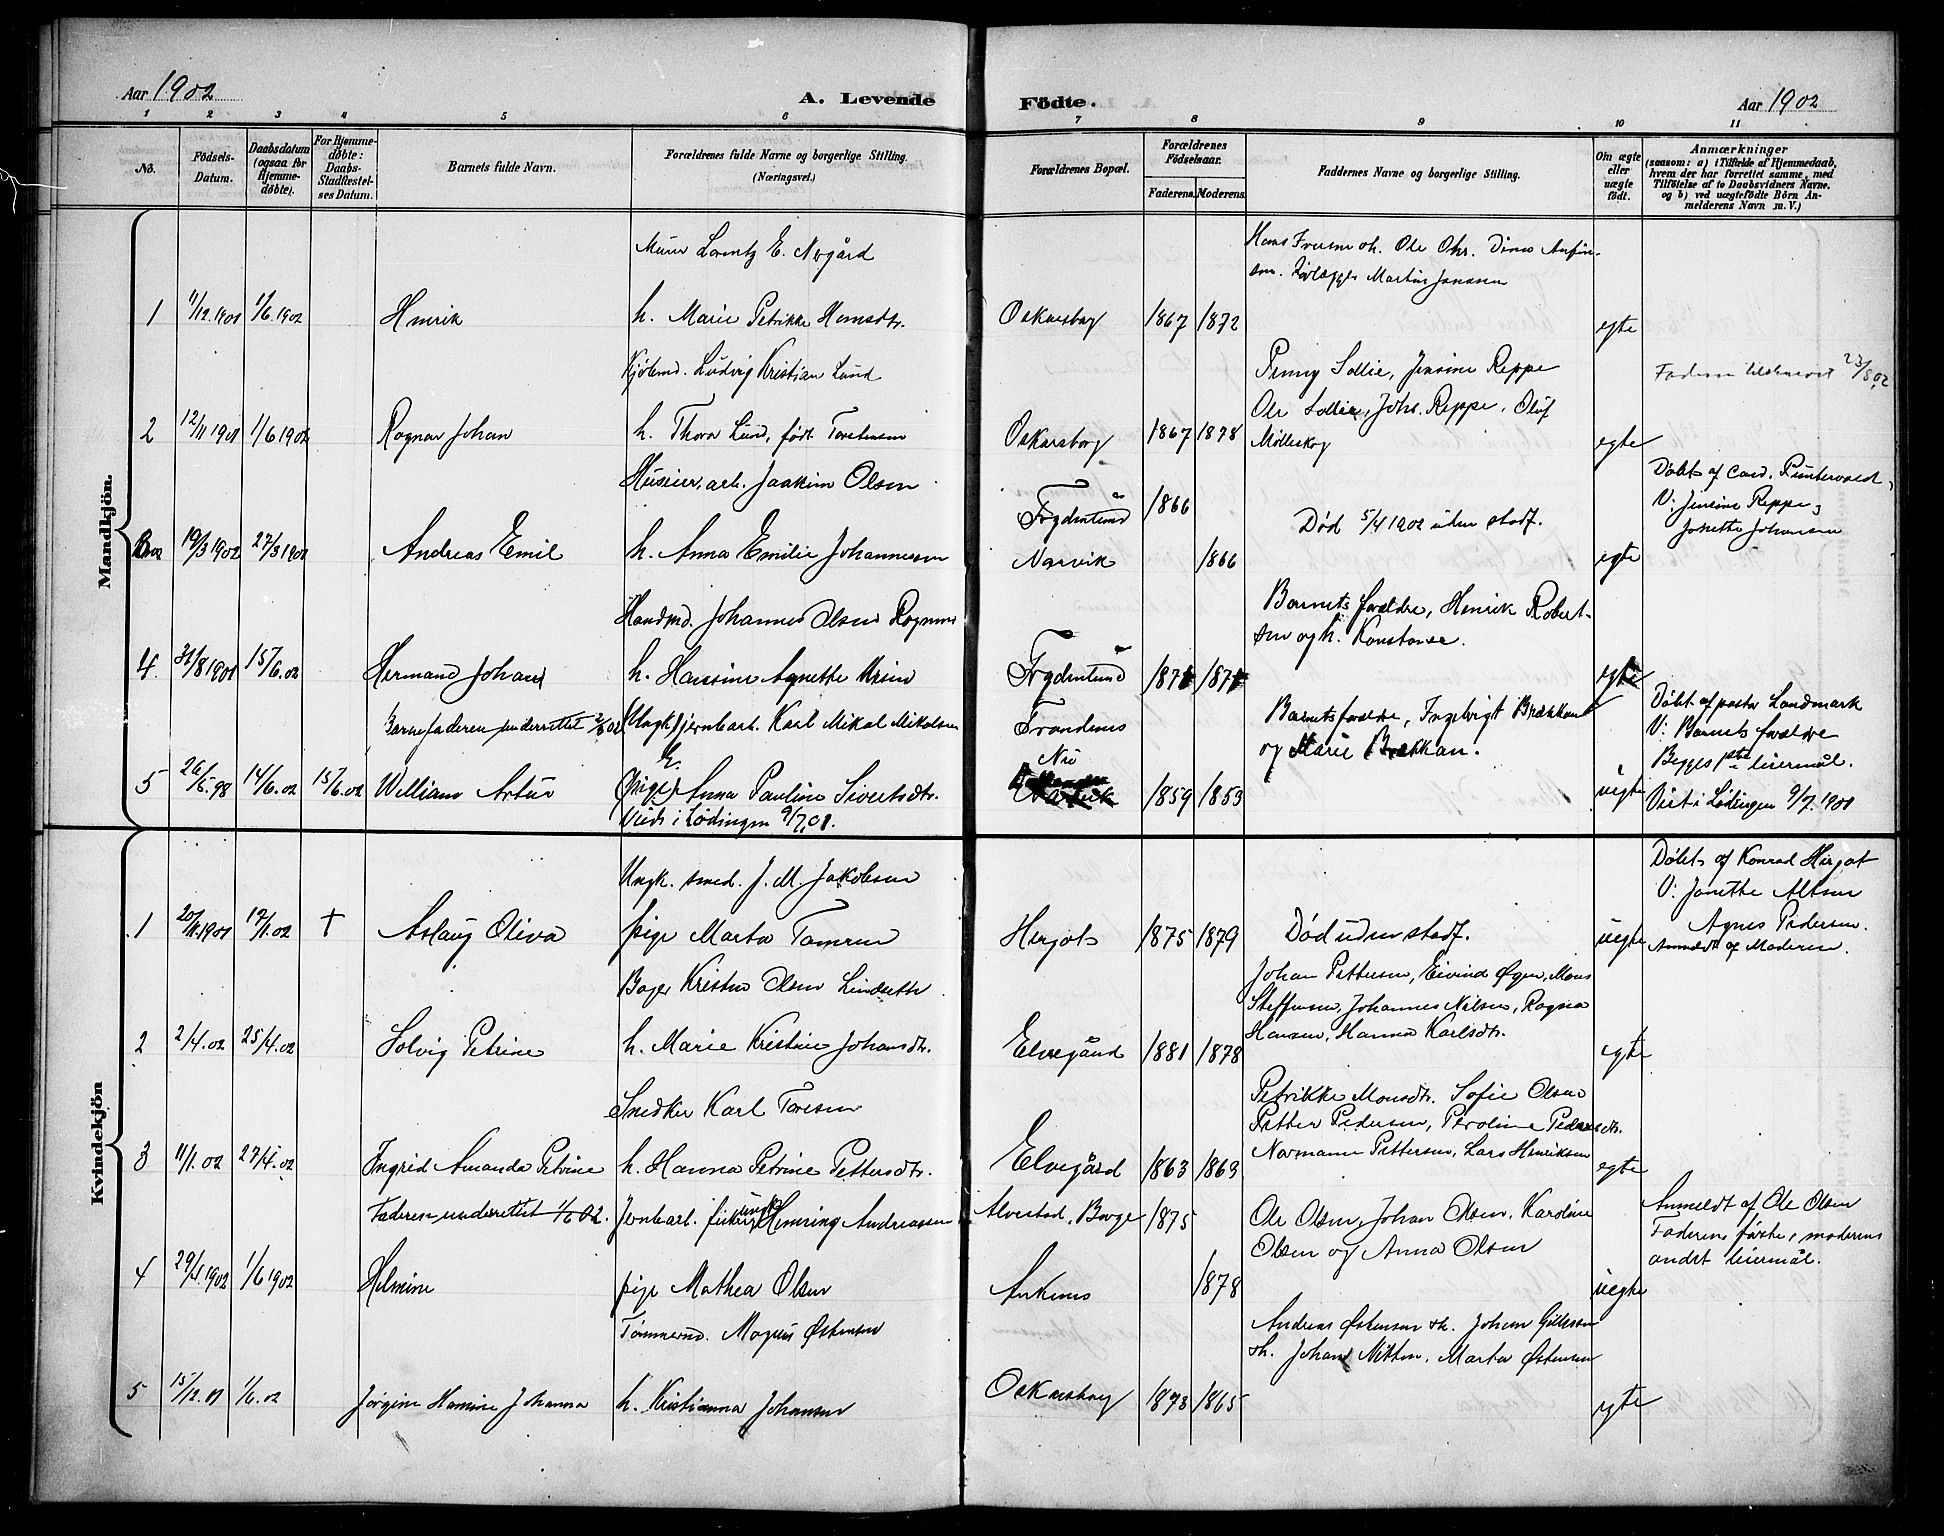 Aar 1902
A. Levende
Födte.
Aar 1902
1 2 3 4 5 6 7 8 9 10 11
No.
Fødsels-Datum.
Daabsdatum (ogsaa for Hjemme-døbte).
For Hjemme-døbte: Daabs-Stadfæstel-ses Datum.
Barnets fulde Navn.
Forældrenes fulde Navne og borgerlige Stilling. (Næringsvei.)
Forældrenes Bopæl.
Forældrenes Fødselsaar.
Faderens. Moderens.
Faddernes Navne og borgerlige Stilling.
Om ægte eller uægte født.
Anmærkninger
(saasom: a) i Tilfælde af Hjemmedaab,
hvem der har forrettet samme, med
Tilføielse af to Daabsvidners Navne,
og b) ved uægtefødte Börn An-
melderens Navn m. V.)
Mandkjön.
Murer Lorentz E. Nergård
Hans Iversen oh. Ole Chr. Dines Anfin-
sen. Martin Jensen
1 11/12.1901 1/6.1902 Henrik h. Marie Petrikke Hansdtr. Oskarsborg 1867 1872 egte
Kjølemd. Ludvig Kristian Lund
Penny Sollie, Jensine Reppe
Faderen 23/8 02
Ole Sollie, Johs. Reppe, Oluf
2 12/11 1901 1/6 1902 Ragnar Johan h. Thora Lund, født Torstensen Oskarsborg 1867 1878 Mølleskog egte
Husier. arb. Joakim Olsen Frydenlund 1866
Døbt af cand.
V: Jensine Reppe,
Død 5/4 1902 uden stadf.
Jonette Johansen
3 19/3 1902 27/3 1902 Andreas Emil h. Anna Emilie Johannesen Narvik 1866 egte
Handmd. Johannes Olsen Rognmo
Barnets forældre, Henrik Robert-
sen og h. Konstanse.
4 31/8 1901 15/6.02 Hermand Johan h. Hansine Agnette Frydenlund 1871 1871 egte
Barnefaderen underrettet 02 Ungk. jernbarb. Karl Mikal Mikalsen Trondenes
Barnets forældre, Ingebrigt Brækkan
og Marie Brækkan.
Døbt af pastor Landmark
V: Barnets forældre
Begges 1ste leiermål.
Nu
5 26/5.98 14/6.02 15/6.02 William Artur (Pige) Anna Pauline Sivertsdtr. Narvik 1859 1853 uegte Viet i Lødingen 9/7.1901
Viede i Lødingen 9/7.01.
Kvindekjön
Ungk. smed. J. M. Jakobsen
Døbt af Konrad Hergot
V: Janethe Altsen
Agnes Pedersen.
1 20/11.1901 17/1.02 † Aslaug Oliva pige Marta Hergot 1875 1879 Død uden stadf. uegte Anmeldt af Moderen.
Bager Kristen Olsen Lindseth
Johan Pettersen, Eivind Øyen, Mons
Steffensen, Johannes Nilsen, Ragna
2 2/4.02 25/4.02 Solvig Petrine h. Marie Kristine Johansdtr. Elvegård 1881 1878 Hansen, Hanna Karlsdtr. egte
Snedker Karl Toresen
Petrikke Monsdtr. Sofie Olsen
Petter Pedersen, Peroline Pedersdtr.
3 11/1.02 27/4.02 Ingrid Amanda Petrine h. Hanna Petrine Pettersdtr. Elvegård 1863 1863 Normann Pettersen, Lars Henriksen egte
Faderen underrettet 1/6 02. Jernbarb. fisker ungk. Henning Andreassen Alvestad, Borge 1875
Ole Olsen, Johan Olsen, Karoline
Olsen og Anna Olsen
Anmeldt af Ole Olsen
Faderens første, moderens
andet leiermål.
4 29/4.1902 1/6 1902 Helmine pige Mathea Olsen Ankenes 1878 uegte
Tømmermd. Magnus Østensen
Andreas Østensen oh. Johan
oh. Johan Marta Østensen
5 15/12.01 1/6.02 Jørgine Hanine Johanna h. Kristianna Johansen Oskarsborg 1873 1865 egte